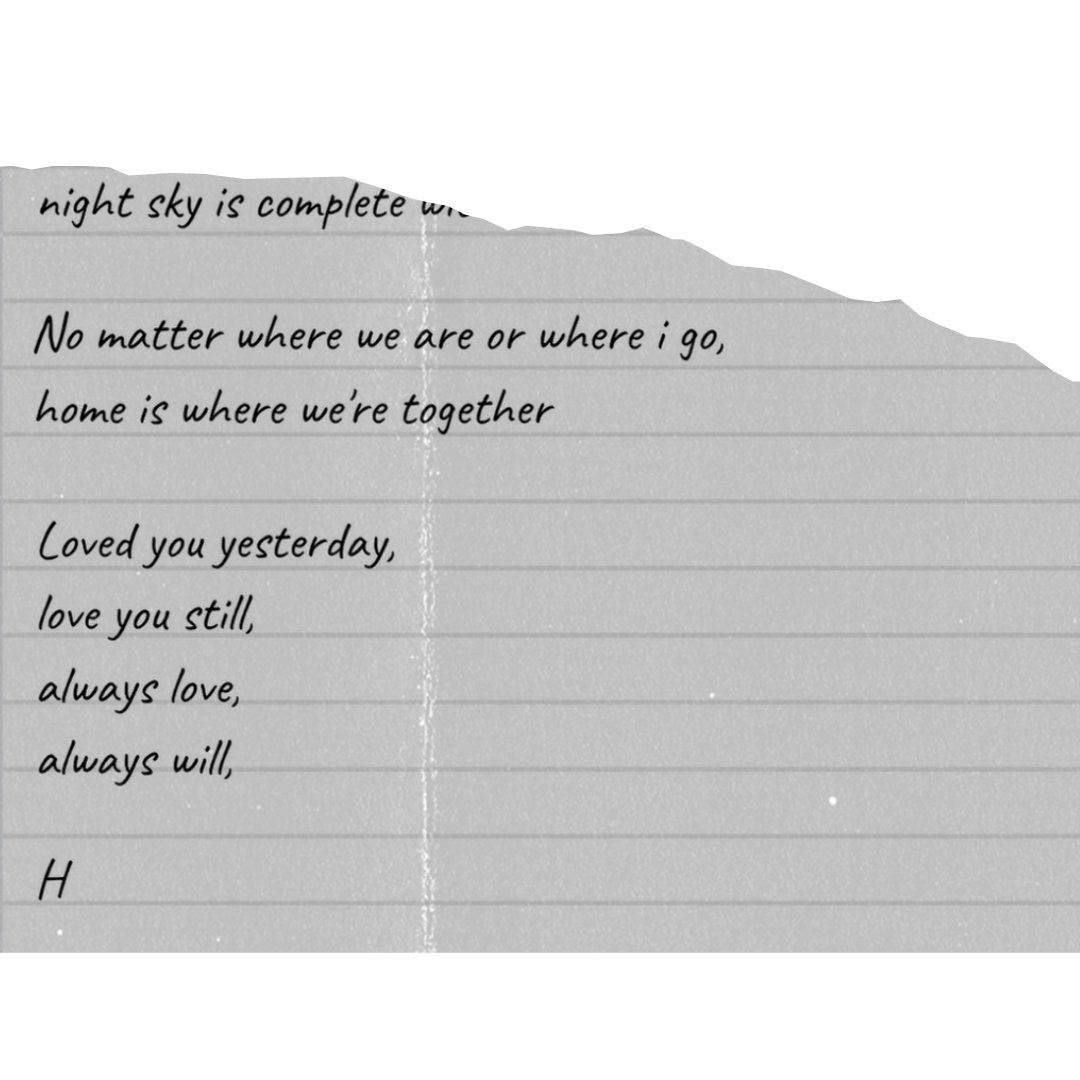 night sky is complete
No matter where we are or where i go,
home is where we're together
Loved you yesterday,
love you still,
always love,
always will,
H